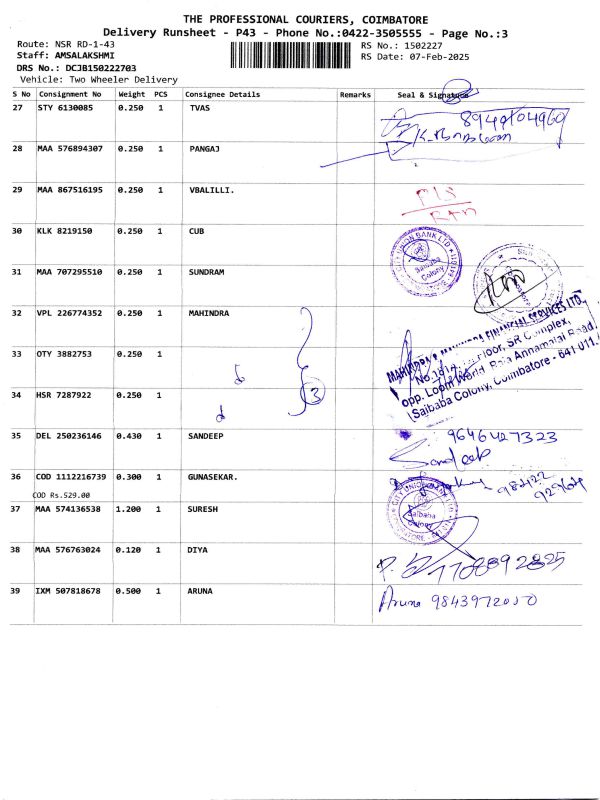 THE PROFESSIONAL COURIERS, COIMBATORE
Delivery Runsheet - P43 - Phone No.:0422-3505555 - Page No.:3
Route: NSR RD-1-43
RS No.: 1502227
Staff: AMSALAKSHMI
RS Date: 07-Feb-2025
DRS No.: DCJB150222703
Vehicle: Two Wheeler Delivery
S No Consignment No Weight PCS Consignee Details Remarks Seal & Signature
27 STY 6130085 0.250 1 TVAS
28 MAA 576894307 0.250 1 PANGAJ
29 MAA 867516195 0.250 1 VBALILLI.
30 KLK 8219150 0.250 1 CUB
CITY UNION BANK LTD
Saibaba
Colony
31 MAA 707295510 0.250 1 SUNDRAM
32 VPL 226774352 0.250 1 MAHINDRA
33 OTY 3882753 0.250 1
MAHINDRA & MAHINDRA FINANCIAL SERVICES LTD.,
Floor, SR Complex,
opp. Loom World, Raja Annamalai Road,
(Saibaba Colony, Coimbatore - 641 011.
34 HSR 7287922 0.250 1
3
35 DEL 250236146 0.430 1 SANDEEP
9646427323
Sandeep
36 COD 1112216739 0.300 1 GUNASEKAR.
COD Rs.529.00
98422
37 MAA 574136538 1.200 1 SURESH
Saibaba
Colony
38 MAA 576763024 0.120 1 DIYA
39 IXM 507818678 0.500 1 ARUNA
Aruna